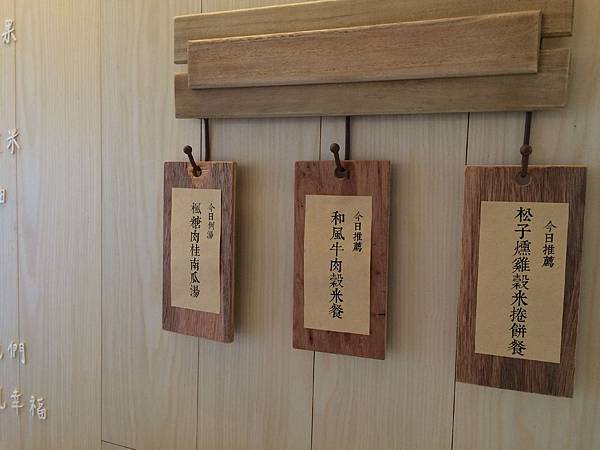 今日推薦
松子燻雞穀米捲餅餐
今日推薦
和風牛肉穀米餐
今日例湯
楓糖肉桂南瓜湯
果
米
們
幸福